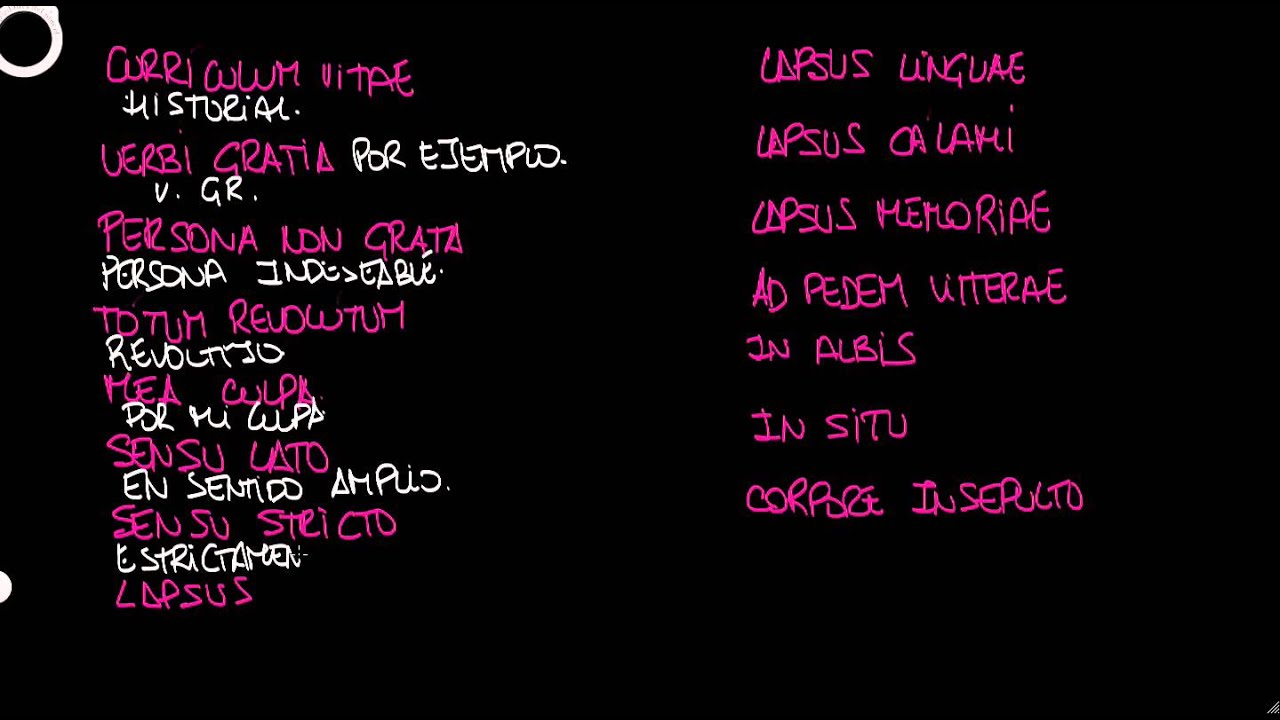 CURRICULUM VITAE
HISTORIAL.
VERBI GRATIA POR EJEMPLO.
V. GR.
PERSONA NON GRATA
PERSONA INDESEABLE.
TOTUM REVOLUTUM
REVOLTIJO
MEA CULPA.
POR MI CULPA
SENSU LATO
EN SENTIDO AMPLIO.
SENSU STRICTO
ESTRICTAMEN
LAPSUS
LAPSUS LINGUAE
LAPSUS CÁLAMI
LAPSUS MEMORIAE
AD PEDEM LITTERAE
IN ALBIS
IN SITU
CORPORE INSEPULTO